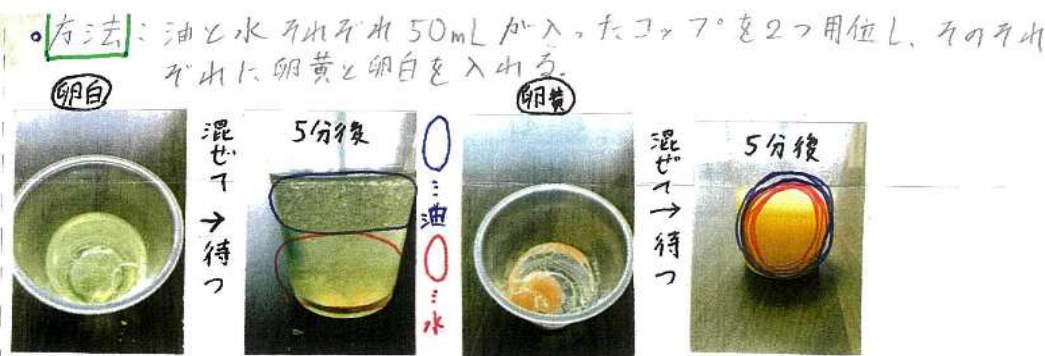 ・方法：油と水それぞれ50mLが入ったコップを2つ用位し、そのそれ
ぞれに卵黄と卵白を入れる。
卵白
混ぜて→待つ
5分後
○…油
○…水
卵黄
混ぜて→待つ
5分後